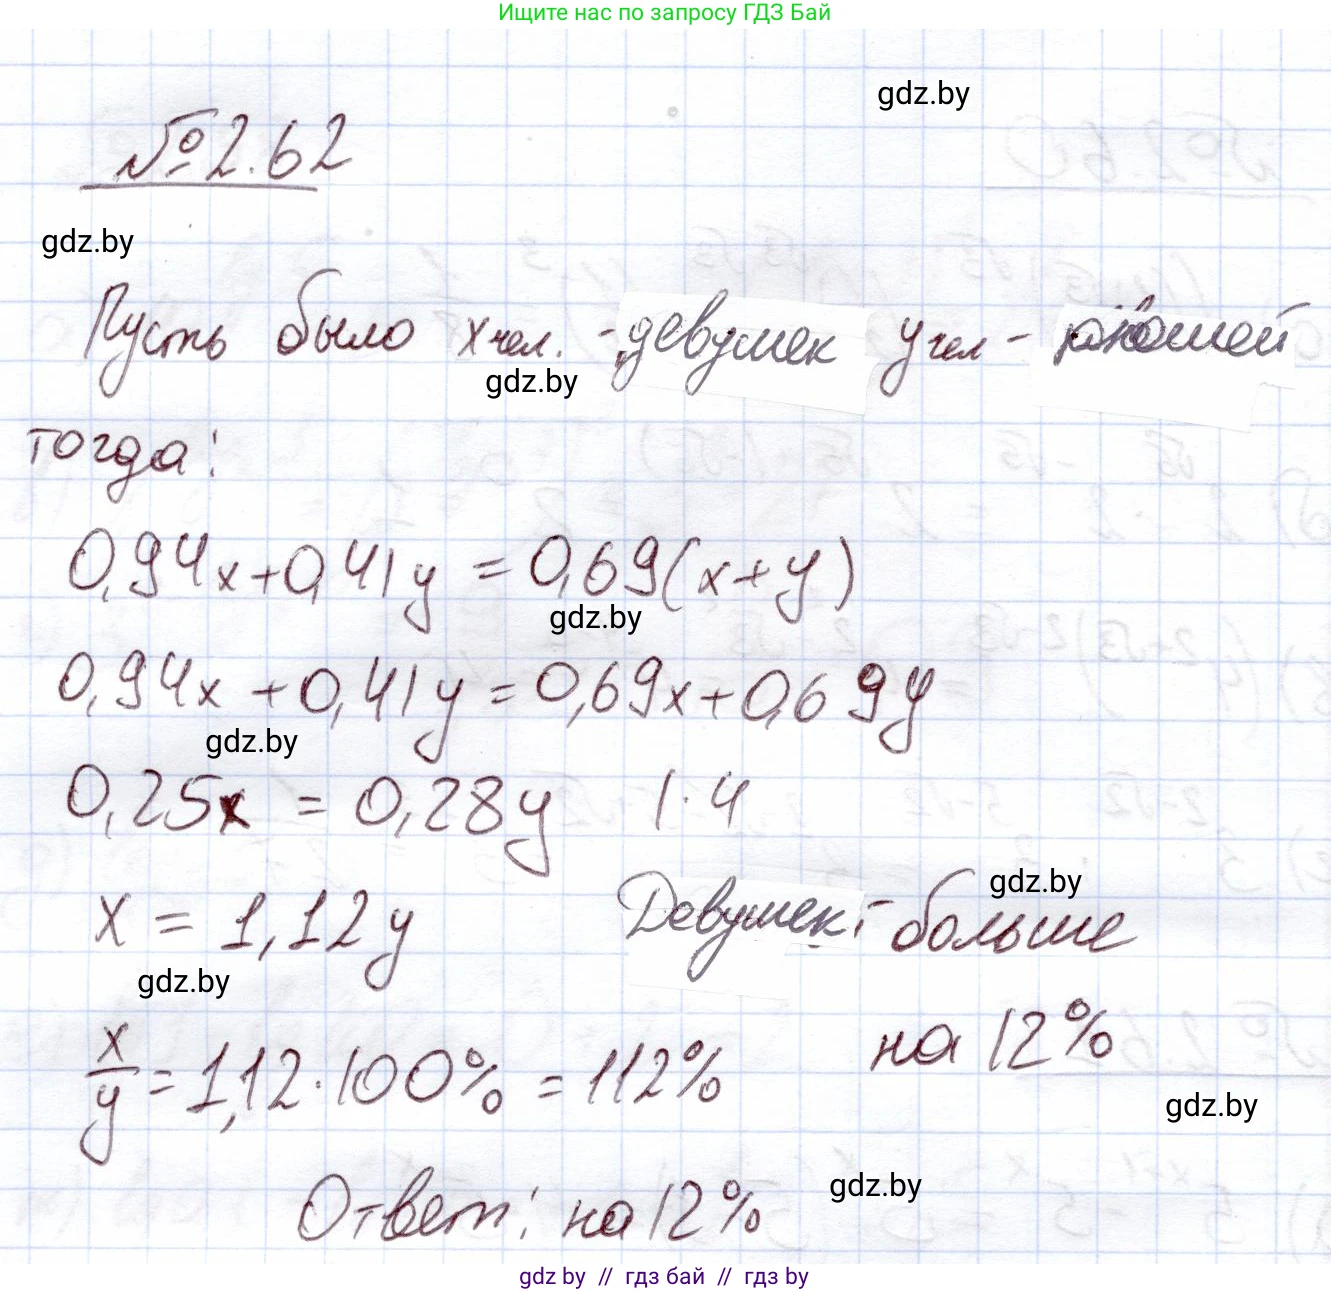 Ищите нас по запросу ГДЗ Бай
gdz.by
№ 2.62
gdz.by
Пусть было x чел. - девушек y чел - юношей
gdz.by
тогда:
0,94x+0,41y = 0,69(x+y)
gdz.by
0,94x+0,41y=0,69x+0,69y
gdz.by
0,25x = 0,28y |·4
gdz.by
x = 1,12y Девушек - больше
gdz.by
на 12%
x/y = 1,12·100% = 112%
gdz.by
gdz.by
Ответ: на 12%
gdz by // гдз бай // гдз by